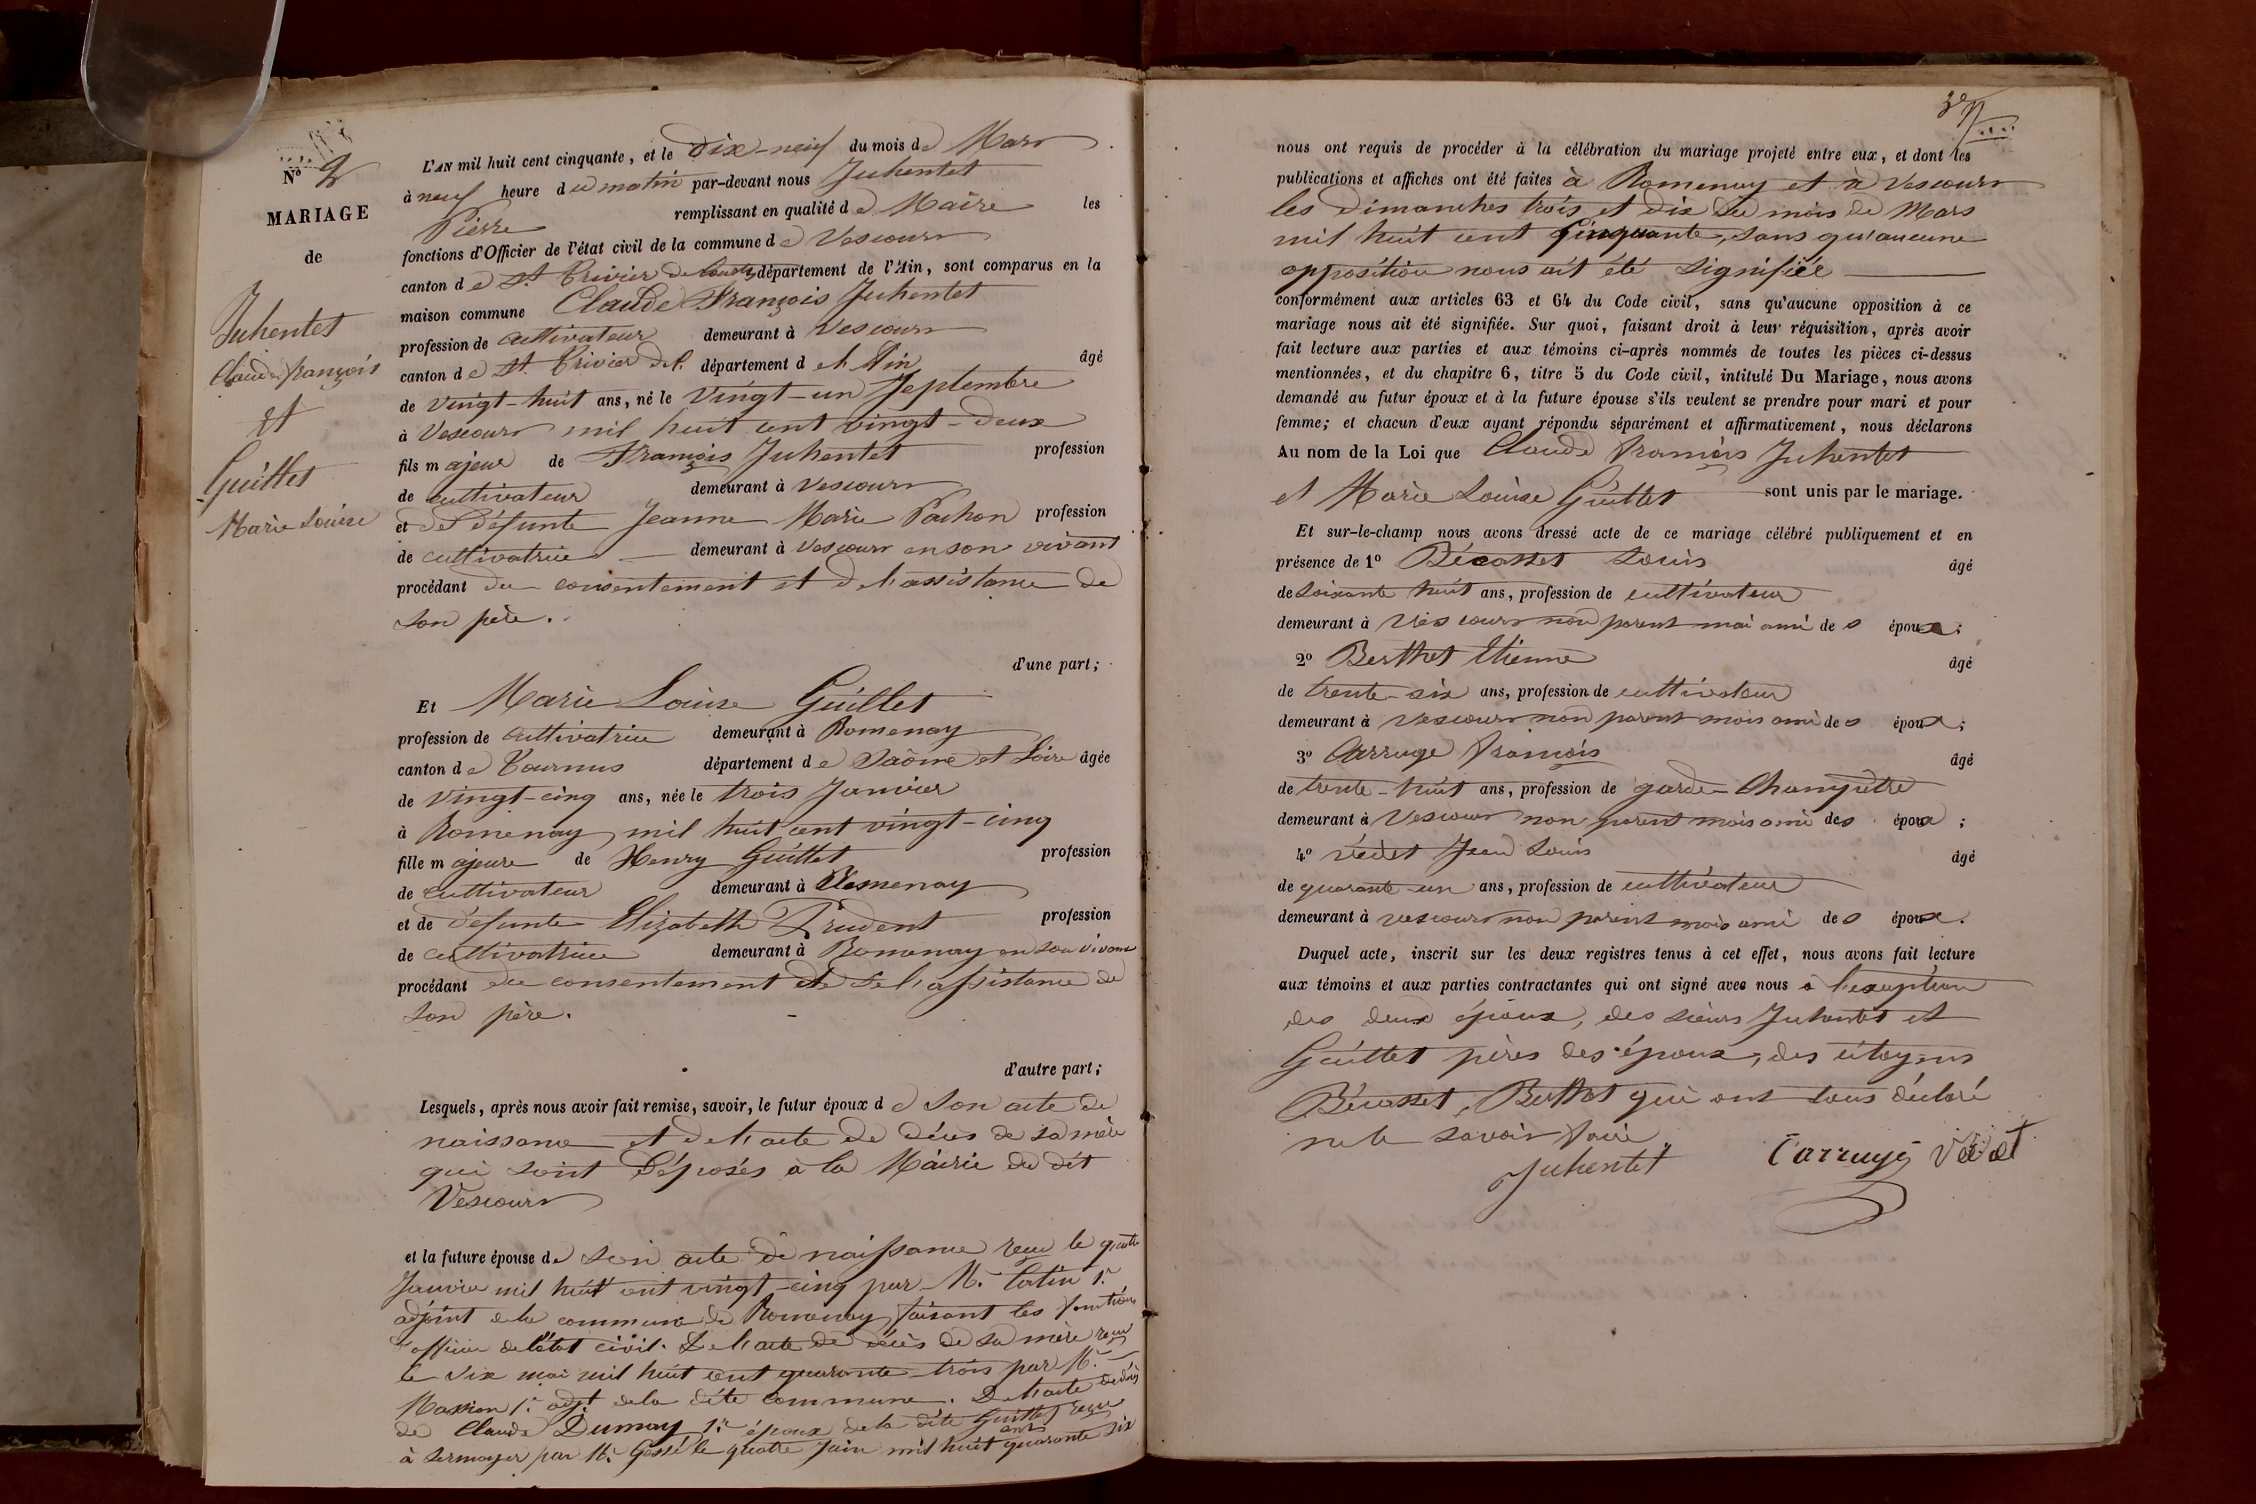 Nº 2
MARIAGE
de
Juhentet
Claude françois
et
Guillet
Marie Louise
L'AN mil huit cent cinquante, et le dix-neuf du mois de Mars
à neuf heure du matin par-devant nous Juhentet
Pierre remplissant en qualité de Maire les
fonctions d'Officier de l'état civil de la commune de Vescours
canton de St. Trivier de Courtes département de l'Ain, sont comparus en la
maison commune Claude François Juhentet
profession de cultivateur demeurant à Vescours
canton de St. Trivier de C. département de l'Ain âgé
de vingt-huit ans, né le vingt-un Septembre
à Vescours mil huit cent vingt-deux
fils majeur de François Juhentet profession
de cultivateur demeurant à Vescours
et de défunte Jeanne Marie Pachon profession
de cultivatrice demeurant à Vescours en son vivant
procédant du consentement et de l'assistance de
son père.
d'une part;
Et Marie Louise Guillet
profession de cultivatrice demeurant à Romenay
canton de Tournus département de Saône et Loire âgée
de vingt-cinq ans, née le trois Janvier
à Romenay mil huit cent vingt-cinq
fille majeure de Henry Guillet profession
de cultivateur demeurant à Romenay
et de défunte Elizabeth Prudent profession
de cultivatrice demeurant à Romenay en son vivant
procédant du consentement et de l'assistance de
son père.
d'autre part;
Lesquels, après nous avoir fait remise, savoir, le futur époux de son acte de
naissance et de l'acte de décès de sa mère
qui sont déposés à la Mairie du dit
Vescours
et la future épouse de son acte de naissance reçu le quatre
Janvier mil huit cent vingt-cinq par M. Catin 1er
adjoint de la commune de Romenay faisant les fonctions
d'officier de l'état civil. De l'acte de décès de sa mère reçu
le dix mai mil huit cent quarante-trois par M.
Massion 1er adjt de la dite commune. De l'acte de décès
de Claude Dumay 1er époux de la dite Guillet reçu
à Sermoyer par M. le quatre Juin mil huit cent quarante six
nous ont requis de procéder à la célébration du mariage projeté entre eux, et dont les
publications et affiches ont été faites à Romenay et à Vescours
les dimanches trois et dix du mois de Mars
mil huit cent cinquante, sans qu'aucune
opposition nous ait été signifiée
conformément aux articles 63 et 64 du Code civil, sans qu'aucune opposition à ce
mariage nous ait été signifiée. Sur quoi, faisant droit à leur réquisition, après avoir
fait lecture aux parties et aux témoins ci-après nommés de toutes les pièces ci-dessus
mentionnées, et du chapitre 6, titre 5 du Code civil, intitulé Du Mariage, nous avons
demandé au futur époux et à la future épouse s'ils veulent se prendre pour mari et pour
femme; et chacun d'eux ayant répondu séparément et affirmativement, nous déclarons
Au nom de la Loi que Claude françois Juhentet
et Marie Louise Guillet sont unis par le mariage.
Et sur-le-champ nous avons dressé acte de ce mariage célébré publiquement et en
présence de 1º Bécasset Louis âgé
de soixante huit ans, profession de cultivateur
demeurant à Vescours non parent mai ami des époux;
2º Berthet Etienne âgé
de trente-six ans, profession de cultivateur
demeurant à Vescours non parent mais ami des époux;
3º Carruge françois âgé
de trente-huit ans, profession de garde-Champêtre
demeurant à Vescours non parent mais ami des époux;
4º Védet Jean Louis âgé
de quarante-un ans, profession de cultivateur
demeurant à Vescours non parent mais ami des époux.
Duquel acte, inscrit sur les deux registres tenus à cet effet, nous avons fait lecture
aux témoins et aux parties contractantes qui ont signé avec nous à l'exception
des deux époux, des sieurs Juhentet et
Guillet pères des époux, des citoyens
Bécasset, Berthet qui ont tous déclaré
ne le savoir faire
Juhentet Carruge Védet